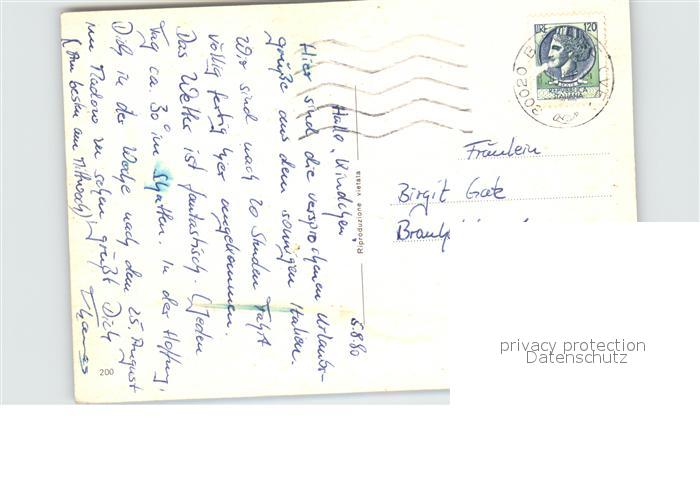 5.8.80
Hallo, Kindchen,
Hier sind die versprochenen Urlaubs-
grüße aus dem sonnigen Italien.
Wir sind nach 20 Stunden Fahrt
völlig fertig hier angekommen.
Das Wetter ist fantastisch. (Jeden
Tag ca. 30° im Schatten. In der Hoffnung,
Dich in der Woche nach dem 25. August
im zu sehen grüßt Dich
(Am besten am Mittwoch)! Thomas
200
Riproduzione vietata
LIRE 120
REPVBBLICA
ITALIANA
30020
Fräulein
Birgit Gatz
privacy protection
Datenschutz